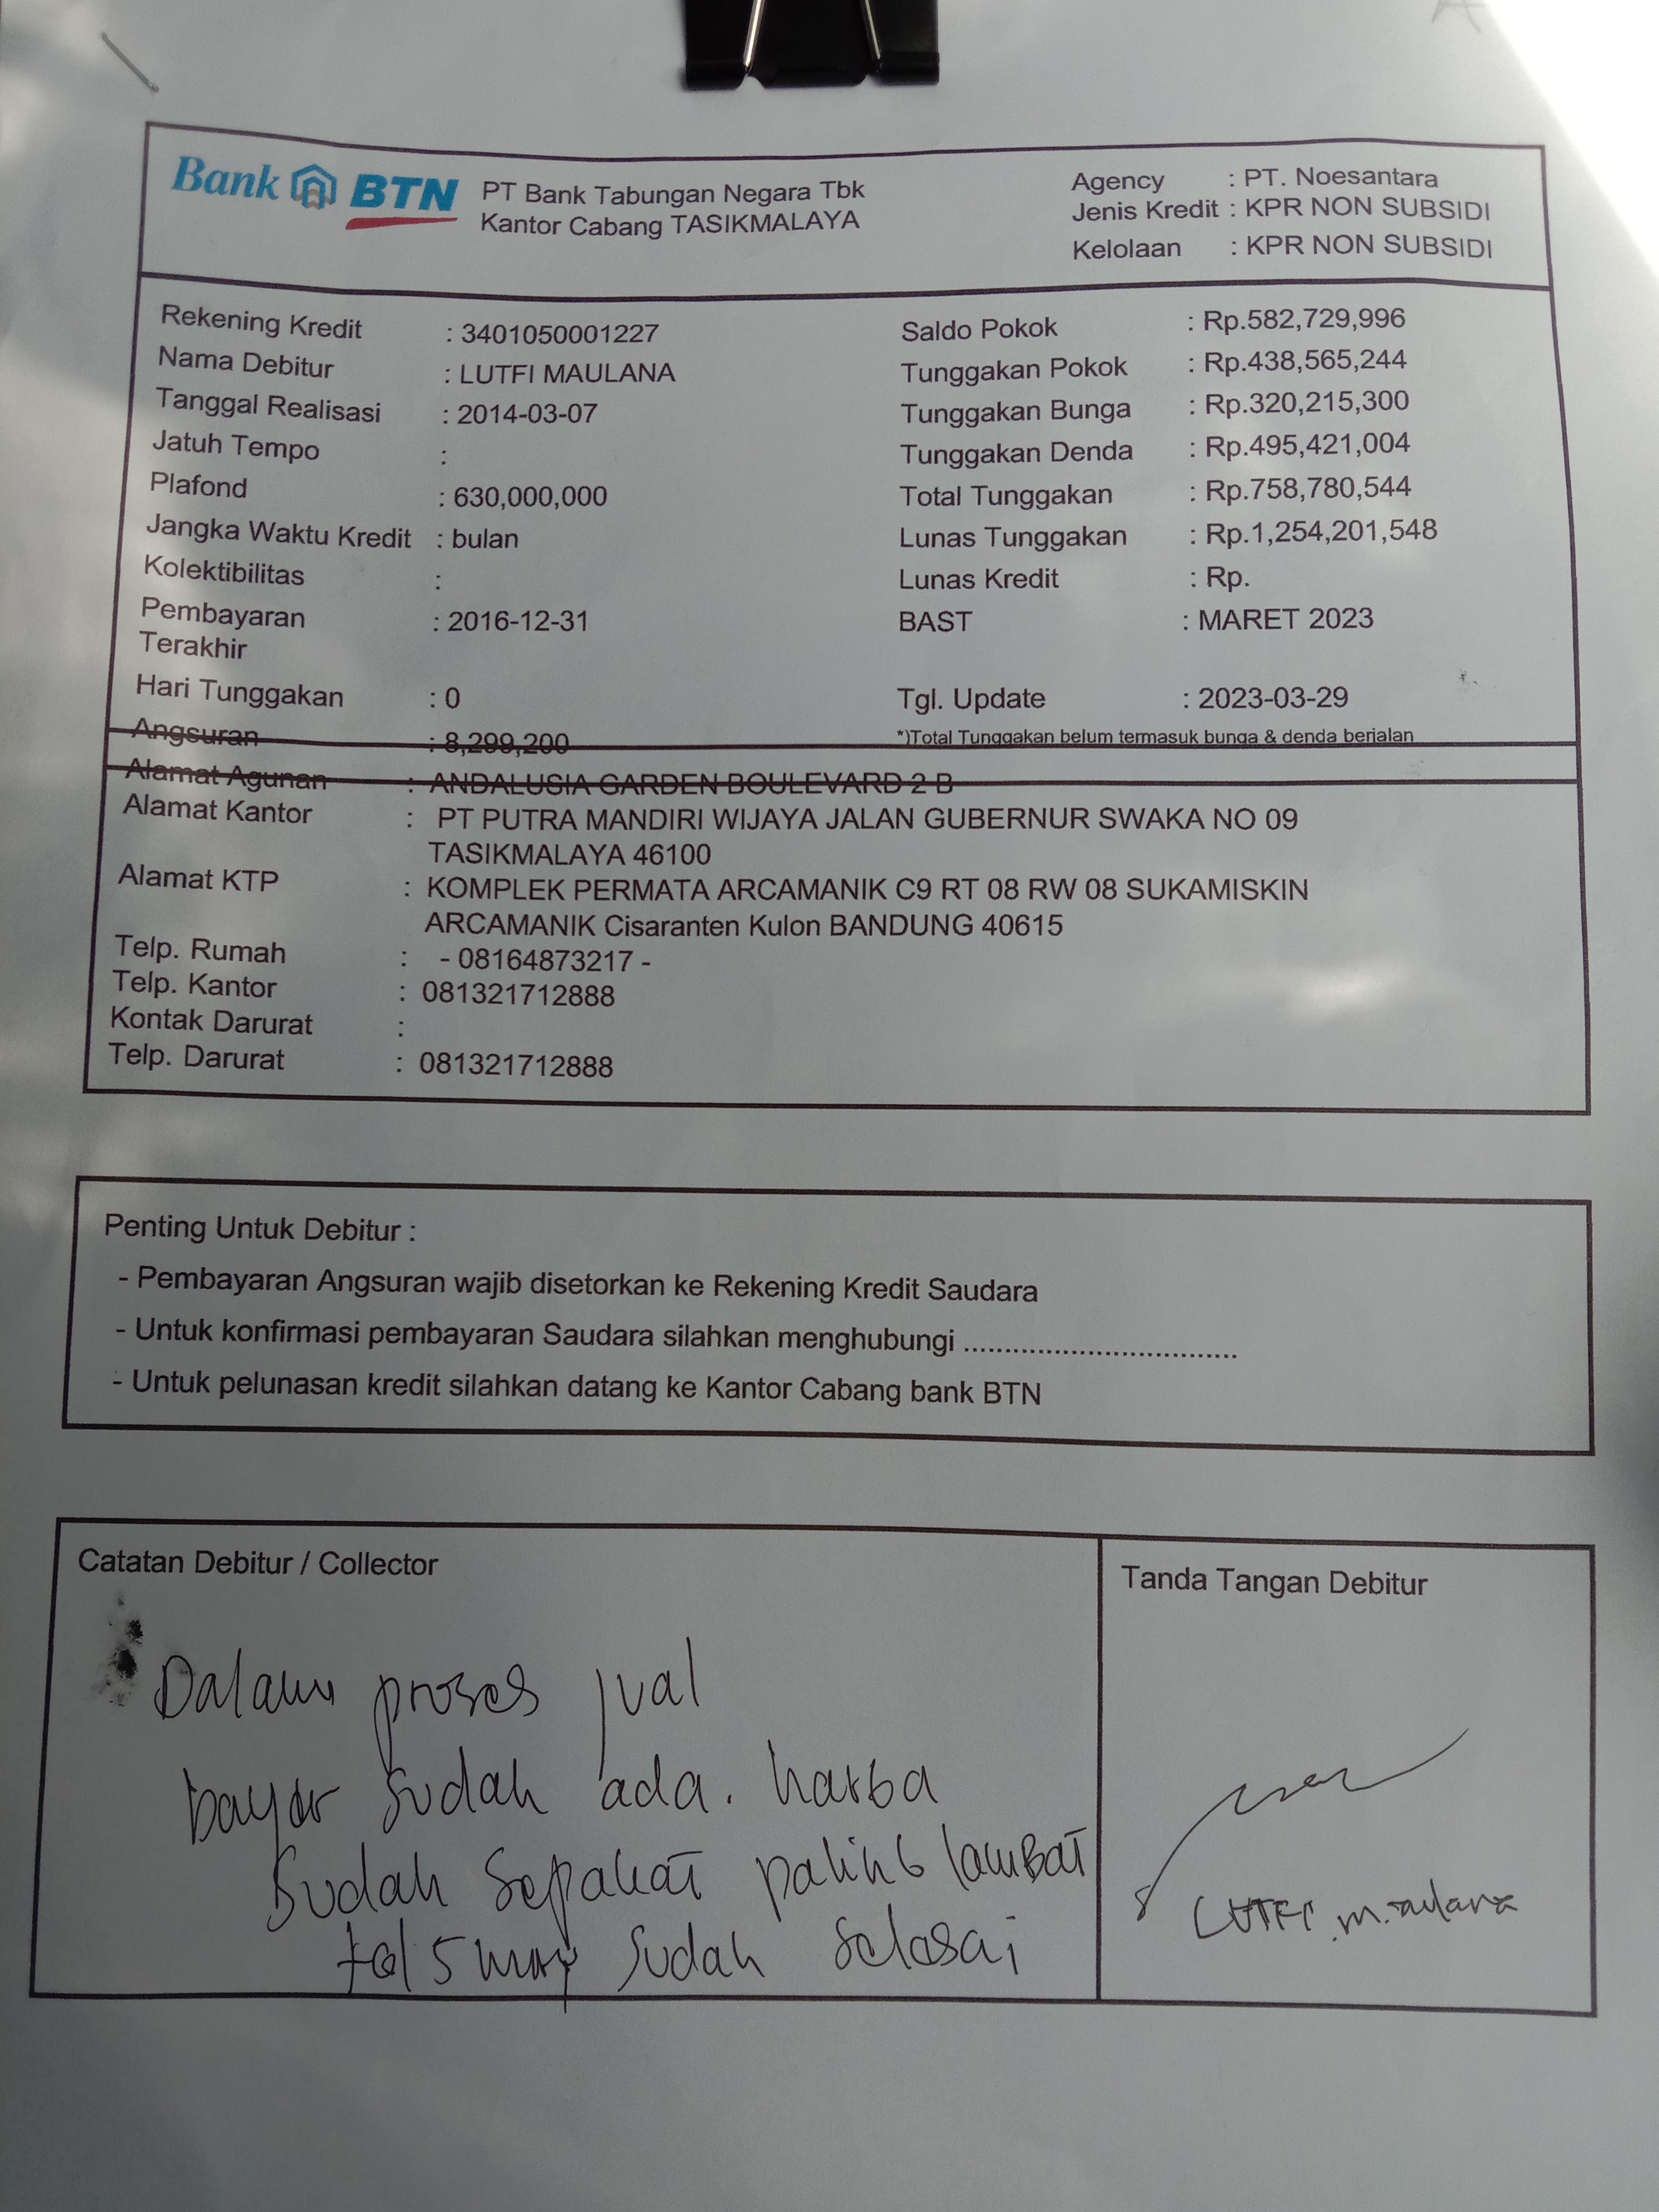 Bank BTN PT Bank Tabungan Negara Tbk
Kantor Cabang TASIKMALAYA
Agency : PT. Noesantara
Jenis Kredit : KPR NON SUBSIDI
Kelolaan : KPR NON SUBSIDI
Rekening Kredit : 3401050001227
Nama Debitur : LUTFI MAULANA
Tanggal Realisasi : 2014-03-07
Jatuh Tempo :
Plafond : 630,000,000
Jangka Waktu Kredit : bulan
Kolektibilitas :
Pembayaran : 2016-12-31
Terakhir
Hari Tunggakan : 0
Angsuran : 8,299,200
Saldo Pokok : Rp.582,729,996
Tunggakan Pokok : Rp.438,565,244
Tunggakan Bunga : Rp.320,215,300
Tunggakan Denda : Rp.495,421,004
Total Tunggakan : Rp.758,780,544
Lunas Tunggakan : Rp.1,254,201,548
Lunas Kredit : Rp.
BAST : MARET 2023
Tgl. Update : 2023-03-29
*)Total Tunggakan belum termasuk bunga & denda berjalan
Alamat Agunan : ANDALUSIA GARDEN BOULEVARD 2 B
Alamat Kantor : PT PUTRA MANDIRI WIJAYA JALAN GUBERNUR SWAKA NO 09
TASIKMALAYA 46100
Alamat KTP : KOMPLEK PERMATA ARCAMANIK C9 RT 08 RW 08 SUKAMISKIN
ARCAMANIK Cisaranten Kulon BANDUNG 40615
Telp. Rumah : - 08164873217 -
Telp. Kantor : 081321712888
Kontak Darurat :
Telp. Darurat : 081321712888
Penting Untuk Debitur :
- Pembayaran Angsuran wajib disetorkan ke Rekening Kredit Saudara
- Untuk konfirmasi pembayaran Saudara silahkan menghubungi .................................
- Untuk pelunasan kredit silahkan datang ke Kantor Cabang bank BTN
Catatan Debitur / Collector
Dalam proses jual
bayar sudah ada. harga
sudah sepakat paling lambat
tgl 5 may sudah selasai
Tanda Tangan Debitur
LUTFI .maulana